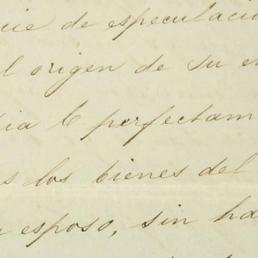 cie de especulacio
l origen de su en
dia le perfectam
s los bienes del
esposo, sin ha